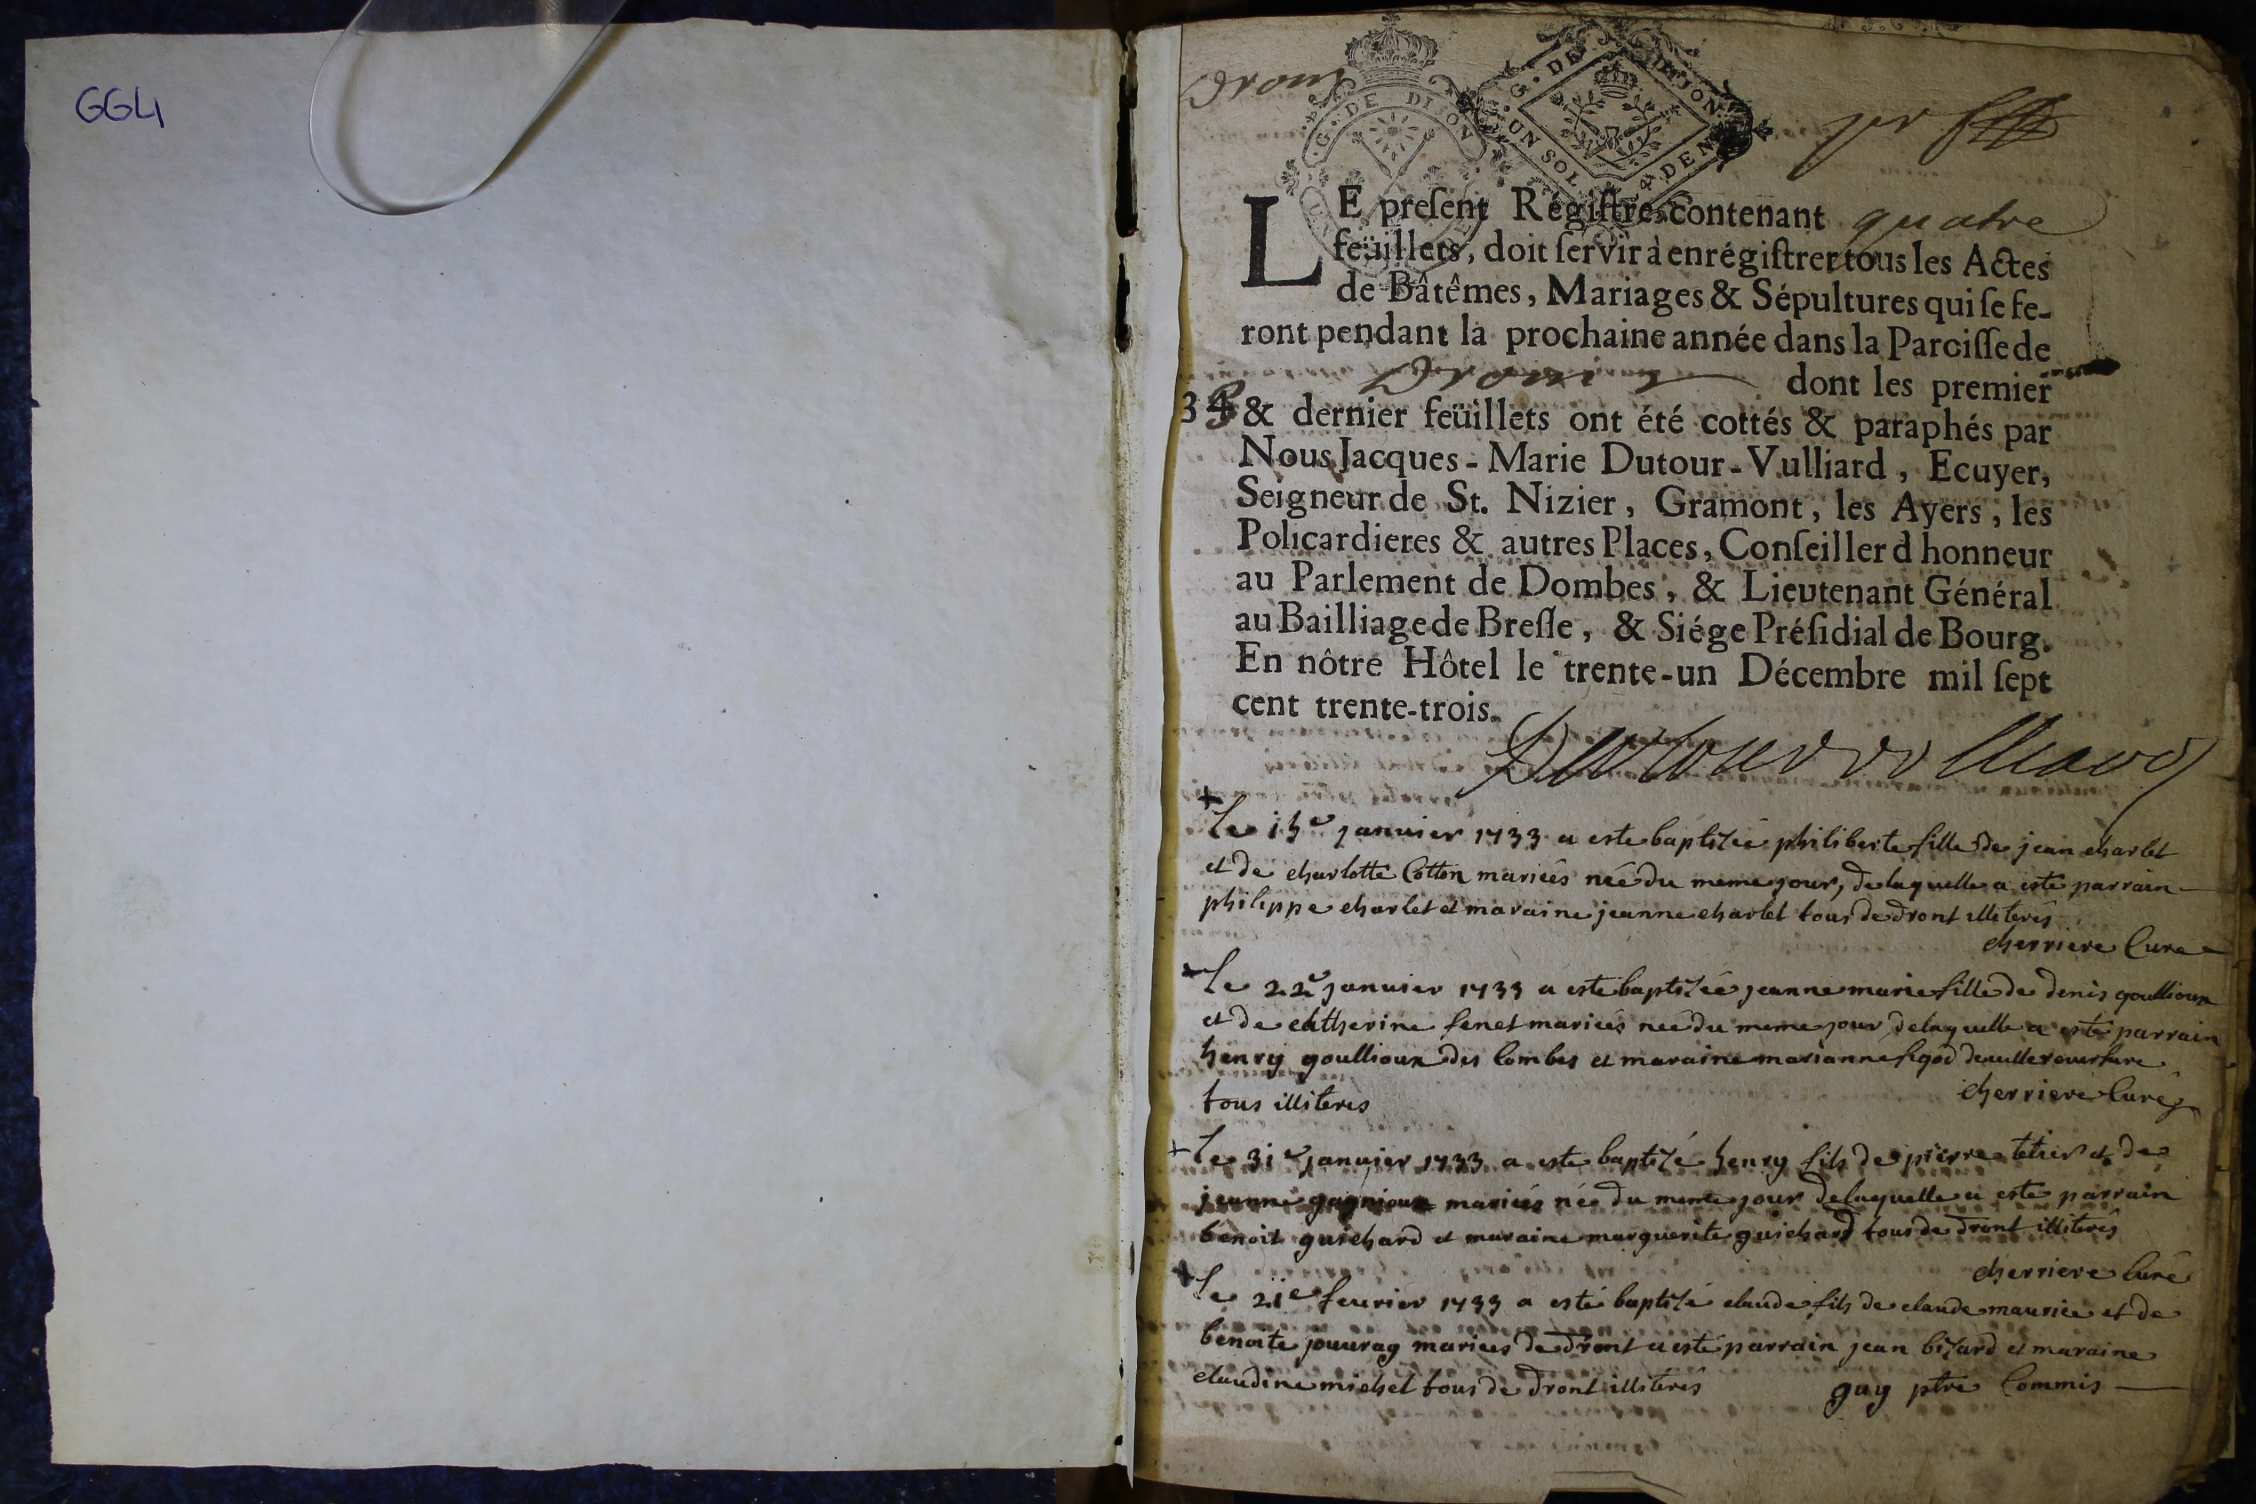 GG4
Dront
G. DE DIJON
UN SOL 4 DEN
G. DE DIJON
LE preſent Régiſtre contenant quatre
feüillets, doit ſervir à enrégiſtrer tous les Actes
de Bâtêmes, Mariages & Sépultures qui ſe fe-
ront pendant la prochaine année dans la Paroiſſe de
dont les premier
& dernier feüillets ont été cottés & paraphés par
Nous Jacques-Marie Dutour-Vulliard, Ecuyer,
Seigneur de St. Nizier, Gramont, les Ayers, les
Policardieres & autres Places, Conſeiller d honneur
au Parlement de Dombes, & Lieutenant Général
au Bailliage de Breſſe, & Siége Préſidial de Bourg.
En nôtre Hôtel le trente-un Décembre mil ſept
cent trente-trois.
Dutour vulliard
+ Le janvier 1733 a este baptizée philiberte fille de jean charlet
et de charlotte Cotton mariés née du meme jour, de laquelle a este parrain
philippe charlet et maraine jeanne charlet tous de dront illiterés
cherriere Curé
Le 22e janvier 1733 a este baptizée jeanne marie fille de denis goullioux
et de catherine fenet mariés née du meme jour de laquelle a esté parrain
henry goullioux des Combes et maraine marianne
tous illiterés
cherriere Curé
+ Le 31e janvier 1733 a este baptizé henry fils de pierre tetier et de
jeanne gagnioux mariés né du meme jour de laquelle a este parrain
benoit guichard et maraine marguerite guichard tous de dront illiterés
cherriere Curé
+ Le 21e fevrier 1733 a esté baptizé claude fils de claude maurice et de
benoite jouvray mariees de dront a esté parrain jean bizard et maraine
claudine michel tous de dront illiterés
guy ptre Commis